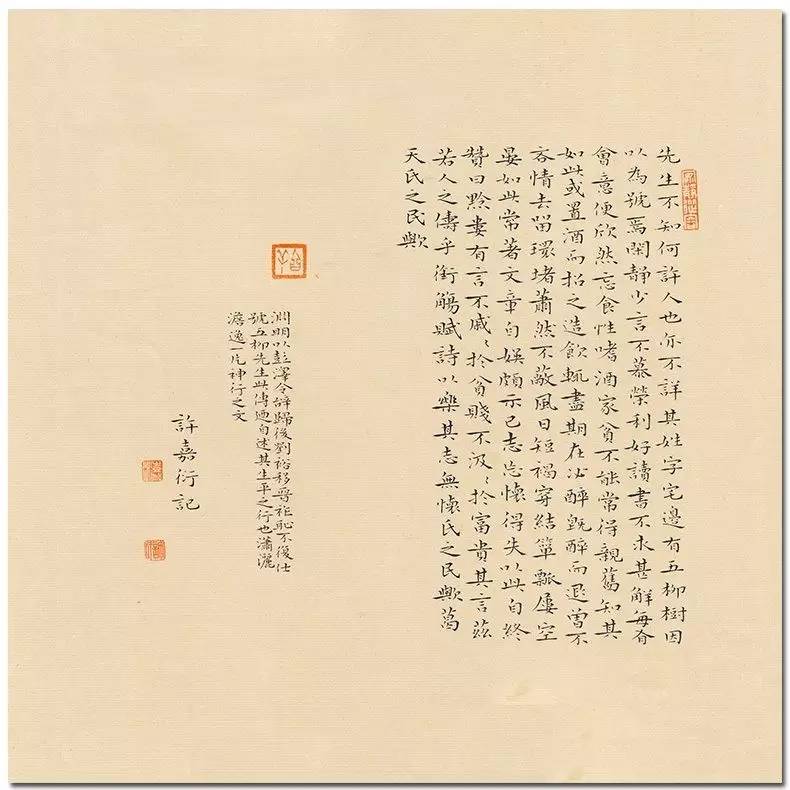 先生不知何許人也亦不詳其姓字宅邊有五柳樹因
以為號焉閑靜少言不慕榮利好讀書不求甚解每有
會意便欣然忘食性嗜酒家貧不能常得親舊知其
如此或置酒而招之造飲輒盡期在必醉既醉而退曾不
吝情去留環堵蕭然不蔽風日短褐穿結簞瓢屢空
晏如此常著文章自娛頗示己志忘懷得失以此自終
贊曰黔婁有言不戚〻於貧賤不汲〻於富貴其言茲
若人之儔乎銜觴賦詩以樂其志無懷氏之民歟葛
天氏之民歟
淵明以彭澤令辭歸後劉裕移晉祚恥不復仕
號五柳先生此傳迺自述其生平之行也瀟灑
澹逸一片神行之文
許嘉衍記